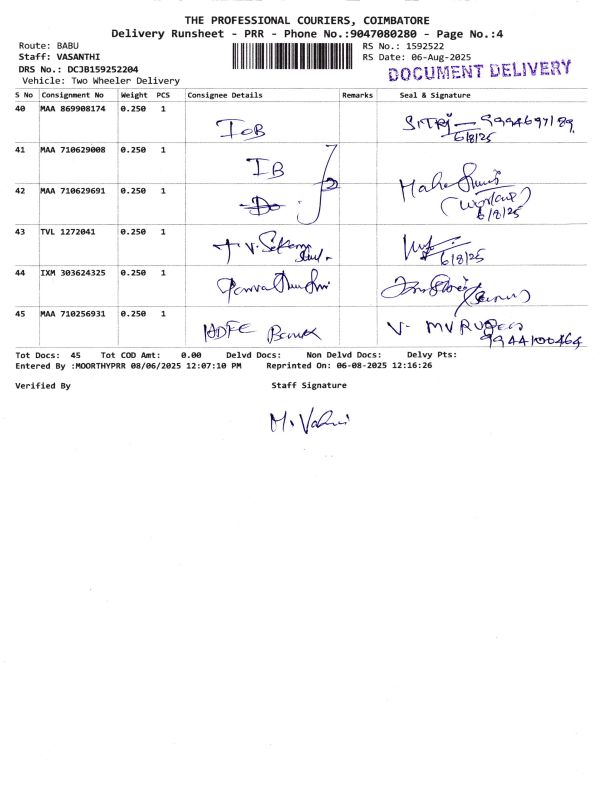 THE PROFESSIONAL COURIERS, COIMBATORE
Delivery Runsheet - PRR - Phone No.:9047080280 - Page No.:4
Route: BABU
Staff: VASANTHI
DRS No.: DCJB159252204
Vehicle: Two Wheeler Delivery
RS No.: 1592522
RS Date: 06-Aug-2025
DOCUMENT DELIVERY
S No Consignment No Weight PCS Consignee Details Remarks Seal & Signature
40 MAA 869908174 0.250 1
IOB
6/8/25
41 MAA 710629008 0.250 1
IB
42 MAA 710629691 0.250 1
Do
6/8/25
43 TVL 1272041 0.250 1
6/8/25
44 IXM 303624325 0.250 1
45 MAA 710256931 0.250 1
HDFC Bank
9944100464
Tot Docs: 45 Tot COD Amt: 0.00 Delvd Docs: Non Delvd Docs: Delvy Pts:
Entered By :MOORTHYPRR 08/06/2025 12:07:10 PM Reprinted On: 06-08-2025 12:16:26
Verified By Staff Signature